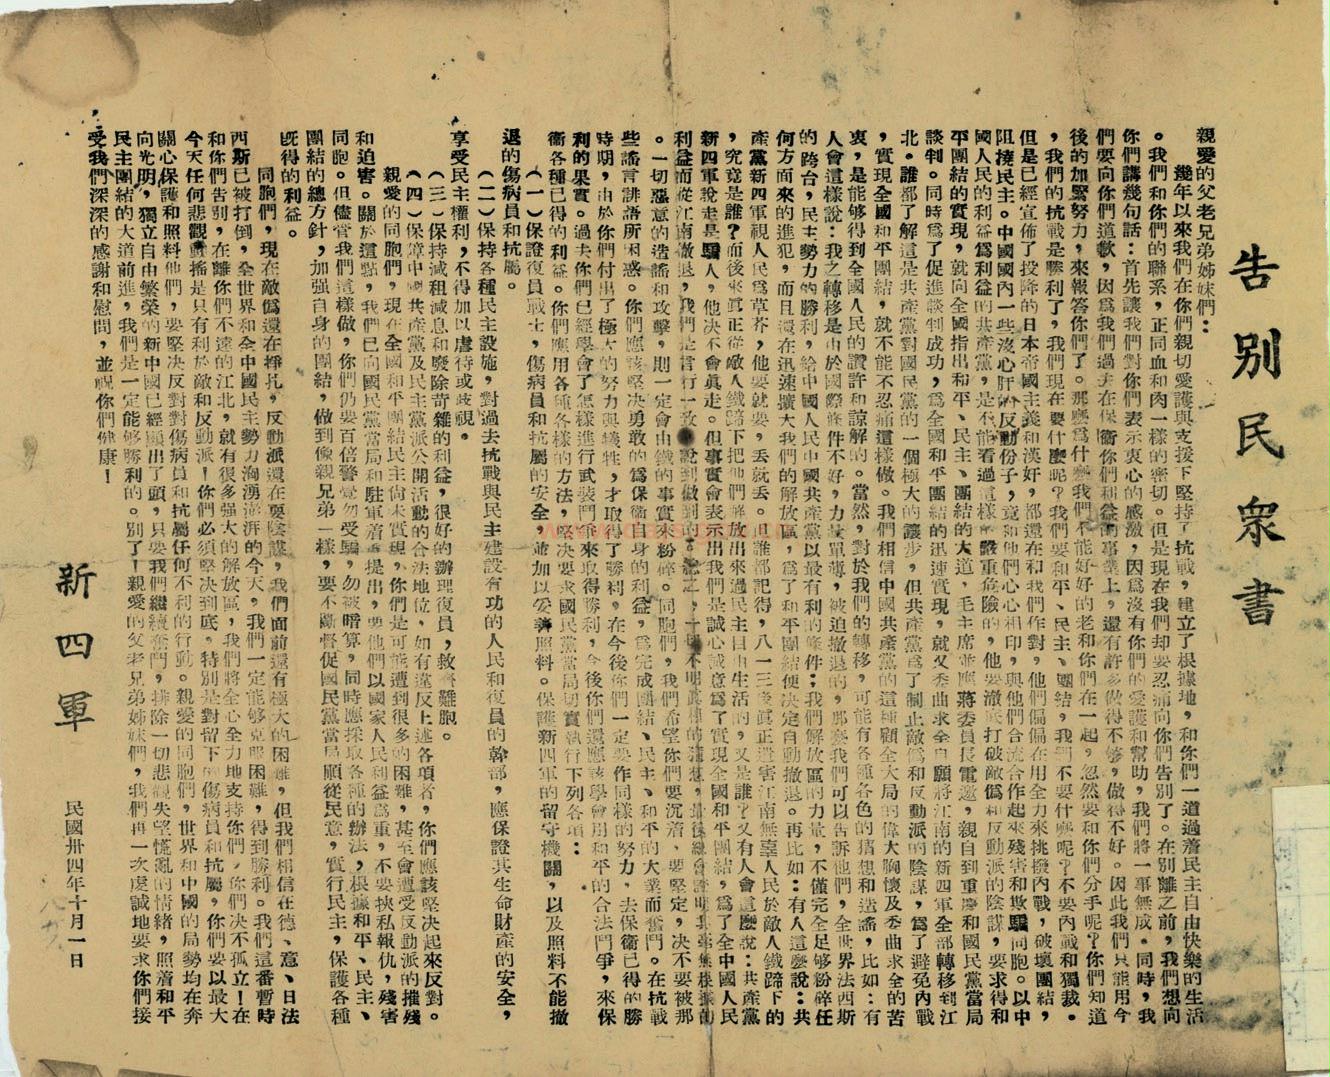 告別民眾書
親愛的父老兄弟姊妹們：
幾年以來我們在你們親切愛護與支援下堅持了抗戰，建立了根據地，和你們一道過着民主自由快樂的生活
。我們和你們的聯系，正同血和肉一樣的密切。但是現在我們却要忍痛向你們告別了。在別離之前，我們想向
你們講幾句話：首先讓我們對你們表示衷心的感激，因爲沒有你們的愛護和幫助，我們將一事無成。同時，我
們要向你們道歉，因爲我們過去在保衛你們利益的事業上，還有許多做得不够，做得不好。因此我們只能用今
後的加緊努力，來報答你們了。那麼爲什麼我們不能好好的老和你們在一起，忽然要和你們分手呢？你們知道
，我們的抗戰是勝利了，我們現在要什麼呢？我們要和平、民主、團結，我們不要什麼呢？不要內戰和獨裁。
但是已經宣佈了投降的日本帝國主義和漢奸，都還在和我們作對，他們偏偏在用全力來挑撥內戰，破壞團結，
阻撓民主。中國國內一些沒心肝的反動份子，竟和他們心心相印，與他們合流合作起來殘害和欺騙同胞。以中
國人民的利益爲利益的共產黨，是不能看過這樣的嚴重危險的，他要澈底打破敵僞和反動派的陰謀，要求得和
平團結的實現，就向全國指出和平、民主、團結的大道，毛主席並應蔣委員長電邀，親自到重慶和國民黨當局
談判。同時爲了促進談判成功，爲全國和平團結的迅速實現，就又委曲求全自願將江南的新四軍全部轉移到江
北。誰都了解這是共產黨對國民黨的一個極大的讓步，但共產黨爲了制止敵僞和反動派的陰謀，爲了避免內戰
，實現全國和平團結，就不能不忍痛這樣做。我們相信中國共產黨的這種顧全大局的偉大胸懷及委曲求全的苦
衷，是能够得到全國人民的讚許和諒解的。當然，對於我們的轉移，可能有各種各色的猜想和造謠，比如：有
人會這樣說：我之轉移是由於國際條件不好，力量單薄，被迫撤退的，那麼我們可以告訴他們，全世界法西斯
的跨台，民主勢力的勝利，給中國人民中國共產黨以最有利的條件；我們解放區的力量，不僅完全足够粉碎任
何方面來的進犯，而且還在迅速擴大我們的解放區，爲了和平團結便決定自動撤退。再比如：有人這麼說：共
產黨新四軍視人民爲草芥，他要就要，丢就丢。但誰都記得，八一三後真正遭害江南無辜人民於敵人鐵蹄下的
，究竟是誰？而後來真正從敵人鐵蹄下把他們解放出來過民主自由生活的，又是誰？又有人會這麼說：共產黨
新四軍說走是騙人，他決不會真走。但事實會表示出我們是誠心誠意爲了實現全國和平團結，爲了全中國人民
利益而從江南撤退，我們是言行一致，說到做到的
。一切惡意的造謠和攻擊，則一定會由鐵的事實來粉碎。同胞們，我們希望你們要沉着，要堅定，決不要被那
些謠言誹語所困惑。你們應該堅決勇敢的爲保衛自身的利益，爲完成團結、民主、和平的大業而奮鬥。在抗戰
時期，由於你們付出了極大的努力與犧牲，才取得了勝利，在今後你們一定要作同樣的努力，去保衛已得的勝
利的果實。過去你們已經學會了怎樣進行武裝鬥爭來取得勝利，今後你們還應該學會用和平的合法鬥爭，來保
衞各種已得的利益。你們應用各種各樣的方法，堅決要求國民黨當局切實執行下列各項：
（一）保證復員戰士，傷病員和抗屬的安全，並加以妥善照料。保護新四軍的留守機關，以及照料不能撤
退的傷病員和抗屬。
（二）保持各種民主設施，對過去抗戰與民主建設有功的人民和復員的幹部，應保證其生命財產的安全，
享受民主權利，不得加以虐待或歧視。
（三）保持減租減息和廢除苛雜的利益，很好的辦理復員，救濟難胞。
（四）保障中國共產黨及民主黨派公開活動的合法地位，如有違反上述各項者，你們應該堅決起來反對。
親愛的同胞們，現在全國和平團結民主尙未實現，你們是可能遭到很多的困難，甚至會遭受反動派的摧殘
和迫害。關於這點，我們已向國民黨當局和駐軍着重提出，要他們以國家人民利益爲重，不要挾私報仇，殘害
同胞。但儘管我們這樣做，你們仍要百倍警覺勿受騙，勿被暗算，同時應採取各種的辦法，根據和平、民主、
團結的總方針，加强自身的團結，做到像親兄弟一樣，要不斷督促國民黨當局順從民意，實行民主，保護各種
旣得的利益。
同胞們，現在敵僞還在掙扎，反動派還在耍陰謀，我們面前還有極大的困難，但我們相信在德、意、日法
西斯已被打倒，全世界和全中國民主勢力洶湧澎湃的今天，我們一定能够克服困難，得到勝利。我們這番暫時
和你們告別，在離你們不遠的江北，就有很多强大的解放區，我們將全心全力地支持你們，你們決不孤立！在
今天任何悲觀動搖是只有利於敵和反動派！你們必須堅決到底。特別是對留下的傷病員和抗屬，你們要以最大
關心保護和照料他們，要堅決反對對傷病員和抗屬任何不利的行動。親愛的同胞們，世界和中國的局勢均在奔
向光明，獨立自由繁榮的新中國已經顯出了頭，只要我們繼續奮鬥，排除一切悲觀失望慌亂的情緒，照着和平
民主團結的大道前進，我們是一定能够勝利的。別了！親愛的父老兄弟姊妹們，我們再一次虔誠地要求你們接
受我們深深的感謝和慰問，並祝你們健康！
新四軍
民國卅四年十月一日